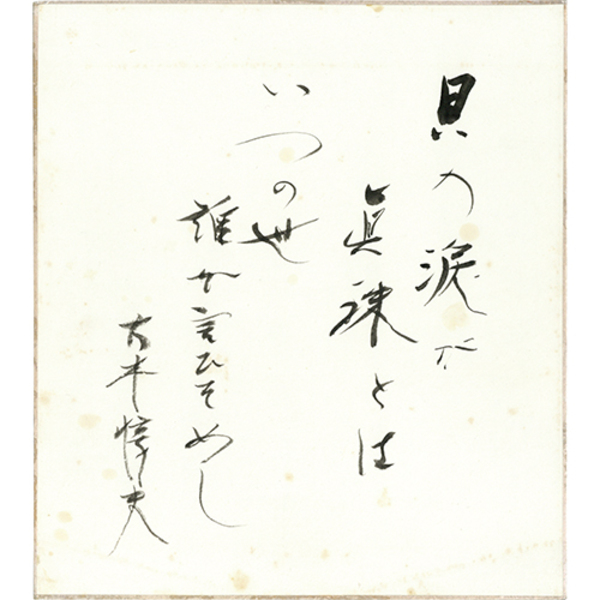 貝の涙が
眞珠とは
いつの世
誰か言ひそめし
大木惇夫